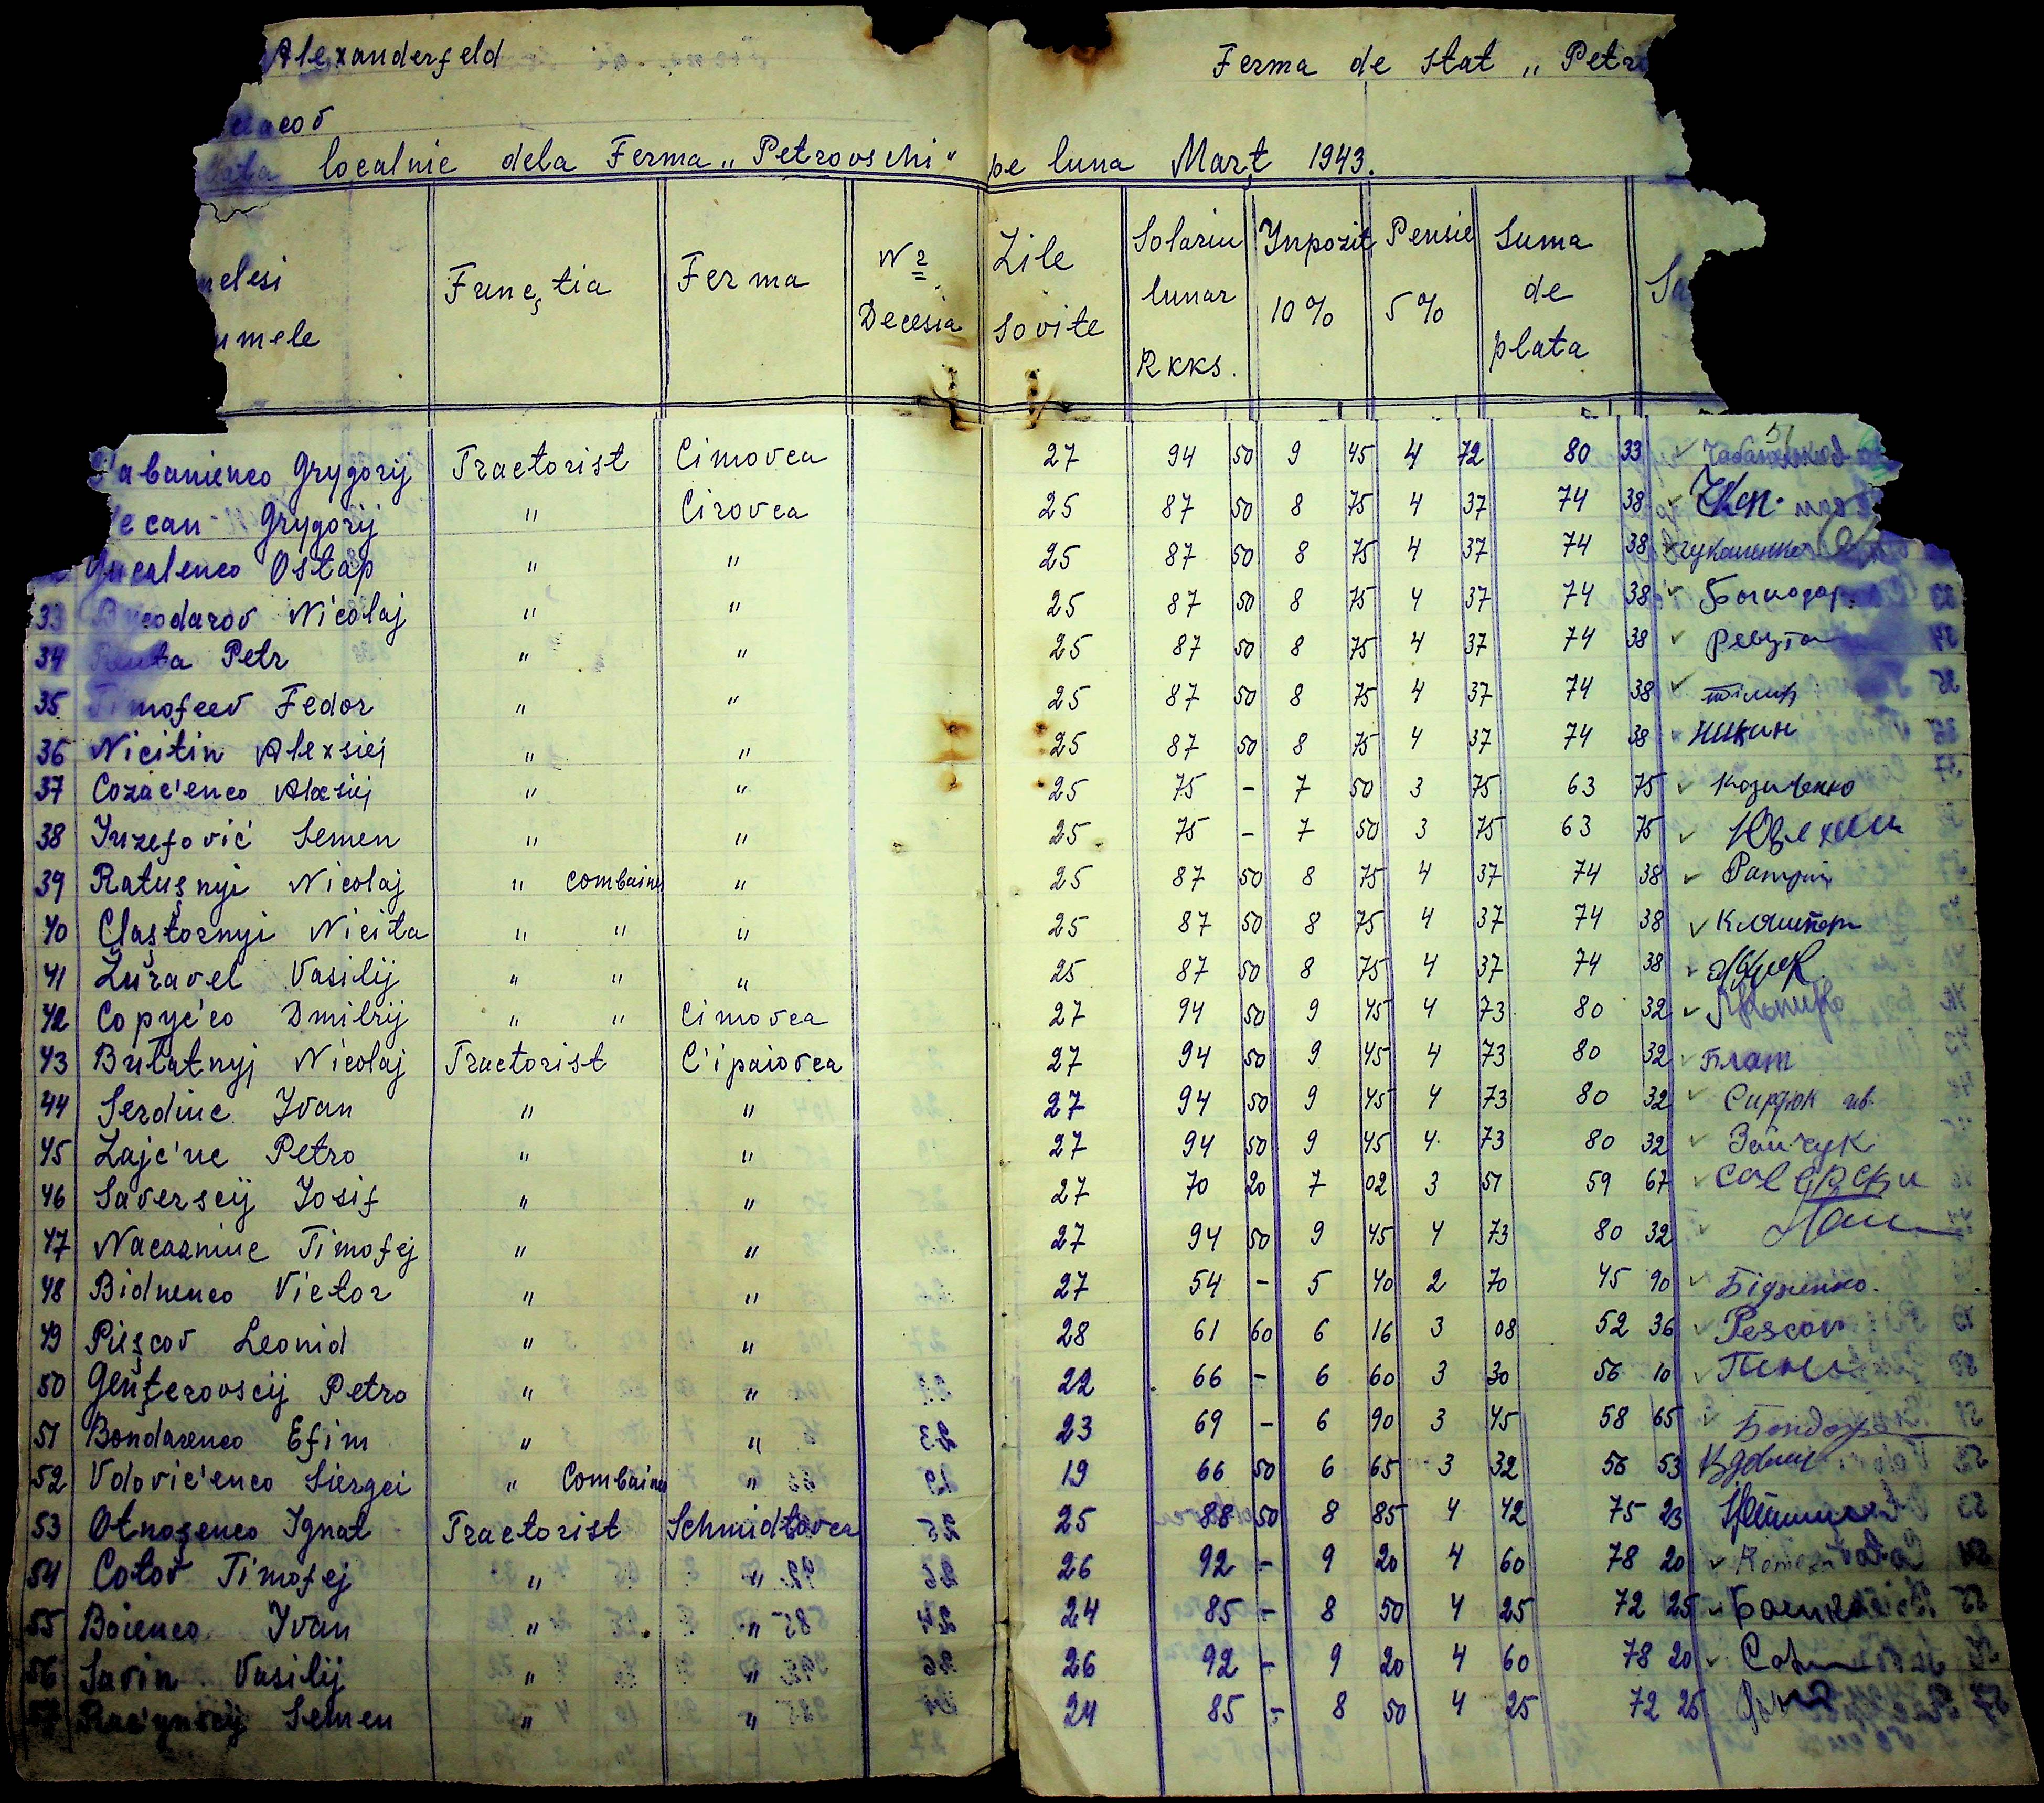 Alexanderfeld
Ferma de stat „Petr
localnie dela Ferma „Petrovschi" pe luna Marţ 1943.
Funcţia Ferma № Decesia Zile Sovite Solariu lunar Rkks. Ynpozit 10% Pensie 5% Suma de plata Sa
umele
abanienco Grygorij Tractorist Cimovca 27 94 50 9 45 4 72 80 33
ecan Grygorij " Cirovca 25 87 50 8 75 4 37 74 38
Ostap " " 25 87 50 8 75 4 37 74 38
33 odarov Nicolaj " " 25 87 50 8 75 4 37 74 38
34 Petr " " 25 87 50 8 75 4 37 74 38 Ревута
35 Timofeev Fedor " " 25 87 50 8 75 4 37 74 38
36 Nicitin Alexsiej " " 25 87 50 8 75 4 37 74 38
37 Cozac'enco Alexsiej " " 25 75 - 7 50 3 75 63 75 Козаченко
38 Yuzefović Semen " " 25 75 - 7 50 3 75 63 75
39 Ratuşnyi Nicolaj " combainer " 25 87 50 8 75 4 37 74 38
40 Claştornyi Nicita " " " 25 87 50 8 75 4 37 74 38
41 Žuravel Vasilij " " " 25 87 50 8 75 4 37 74 38
42 Copyc'co Dmitrij " " Cimovca 27 94 50 9 45 4 73 80 32
43 Bulatnyj Nicolaj Tractorist C'ipaiovca 27 94 50 9 45 4 73 80 32 Блат
44 Serdiuc Yvan " " 27 94 50 9 45 4 73 80 32 Сирдюк ив.
45 Zajc'uc Petro " " 27 94 50 9 45 4 73 80 32 Зайчук
46 Saverscij Yosif " " 27 70 20 7 02 3 51 59 67
47 Nacazniuc Timofej " " 27 94 50 9 45 4 73 80 32
48 Bidnenco Victor " " 27 54 - 5 40 2 70 45 90 Бідненко.
49 Pieşcov Leonid " " 28 61 60 6 16 3 08 52 36 Pescov
50 Genţerovscij Petro " " 22 66 - 6 60 3 30 56 10
51 Bondarenco Efim " " 23 69 - 6 90 3 45 58 65
52 Vdovic'enco Siergei " Combainer " 19 66 50 6 65 3 32 56 53
53 Otnoşenco Ygnat Tractorist Schmidtovca 25 88 50 8 85 4 42 75 23
54 Cotov Timofej " " 26 92 - 9 20 4 60 78 20
55 Boienco Yvan " " 24 85 - 8 50 4 25 72 25
56 Savin Vasilij " " 26 92 - 9 20 4 60 78 20
57 Semen " " 24 85 - 8 50 4 25 72 25